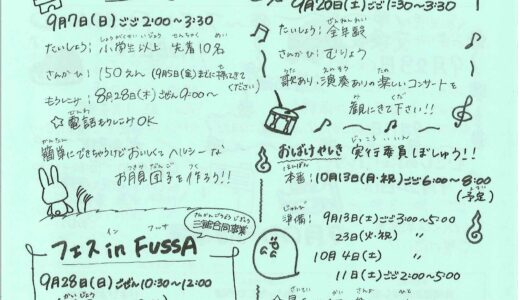 9月7日(日)ごご2:00〜3:30
たいしょう:小学生以上 先着10名
さんかひ:150えん(9月5日(金)までに持ってきてください)
もうしこみ:8月28日(木)ごぜん9:00〜
☆電話もうしこみOK
簡単にできちゃうけどおいしくてヘルシーな
お月見団子を作ろう!!
三館合同事業
フェス in FUSSA
9月28日(日)ごぜん10:30〜12:00
9月20日(土)ごご1:30〜3:30
たいしょう:全年齢
さんかひ:むりょう
歌あり、演奏ありの楽しいコンサートを
観にきて下さい!!
おばけやしき 実行委員ぼしゅう!!
本番:10月13日(月・祝)ごご6:00〜8:00
(予定)
準備:9月13日(土)ごご3:00〜5:00
23日(火・祝) 〃
10月4日(土) 〃
11日(土)ごご2:00〜5:00